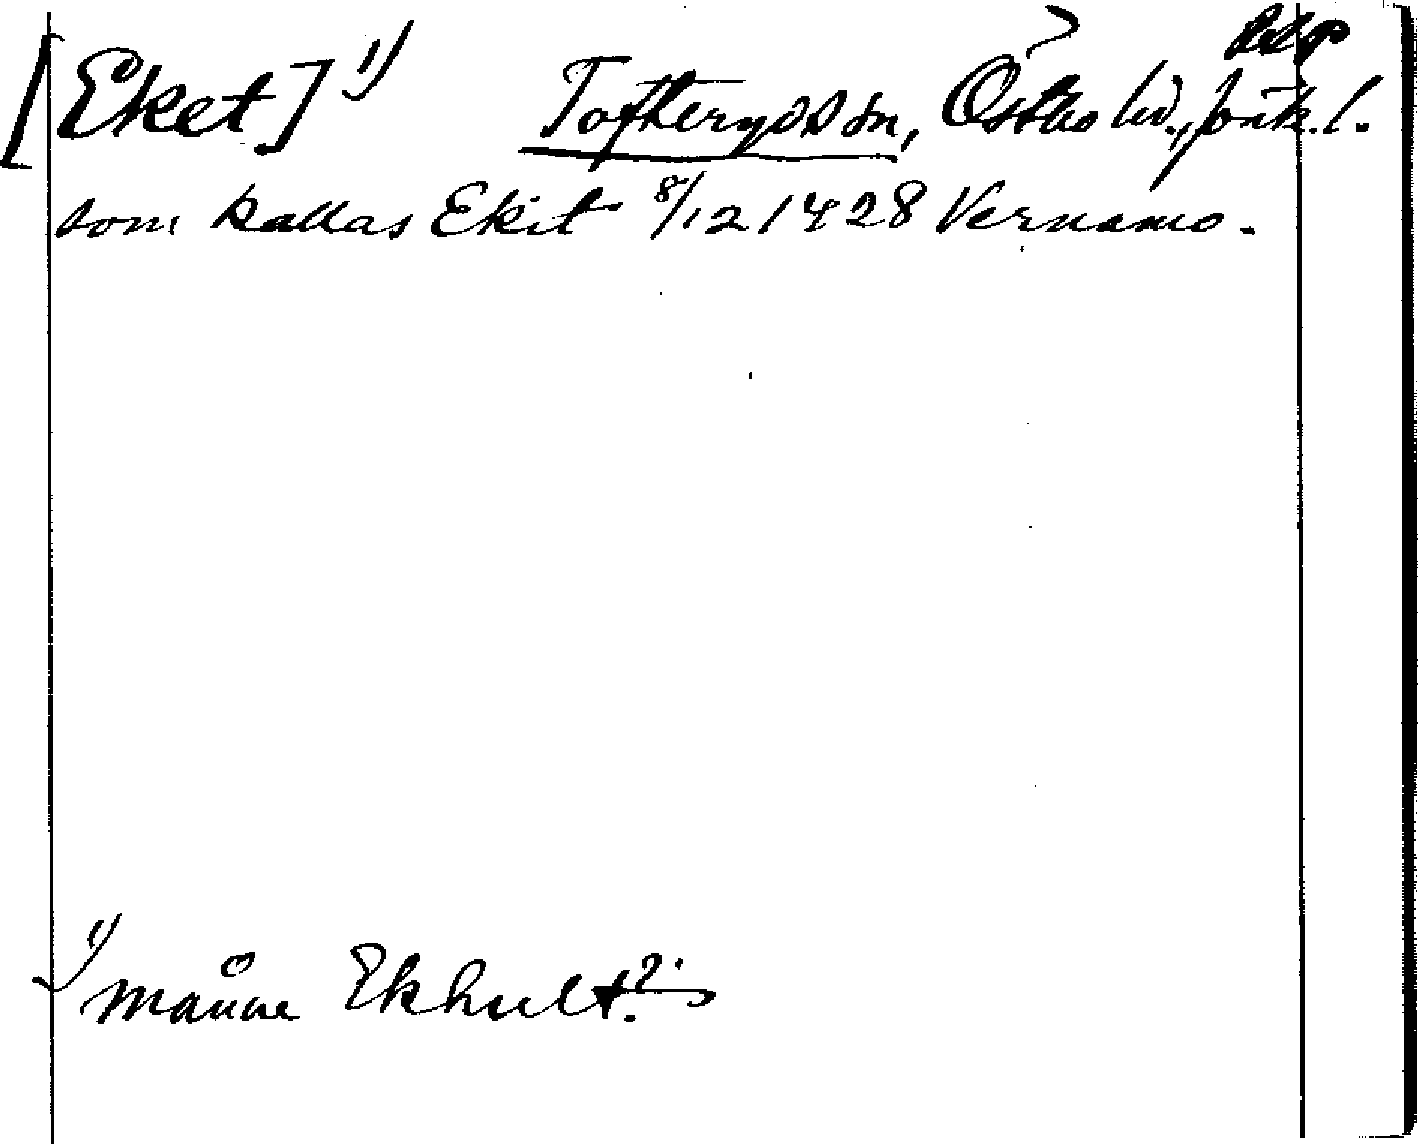 [Eket] 1) Tofteryds sn, Östbo hd., Jönk. l.
som kallas Ekit 8/12 1428 Vernamo.
1) månne Ekhult?